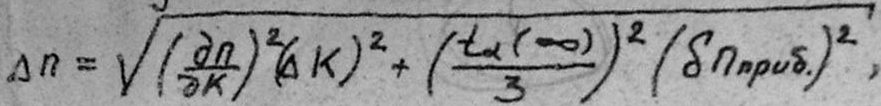 Δn = √((∂n/∂K)²(ΔK)² + (t_α(∞)/3)² (δn_приб.)²),